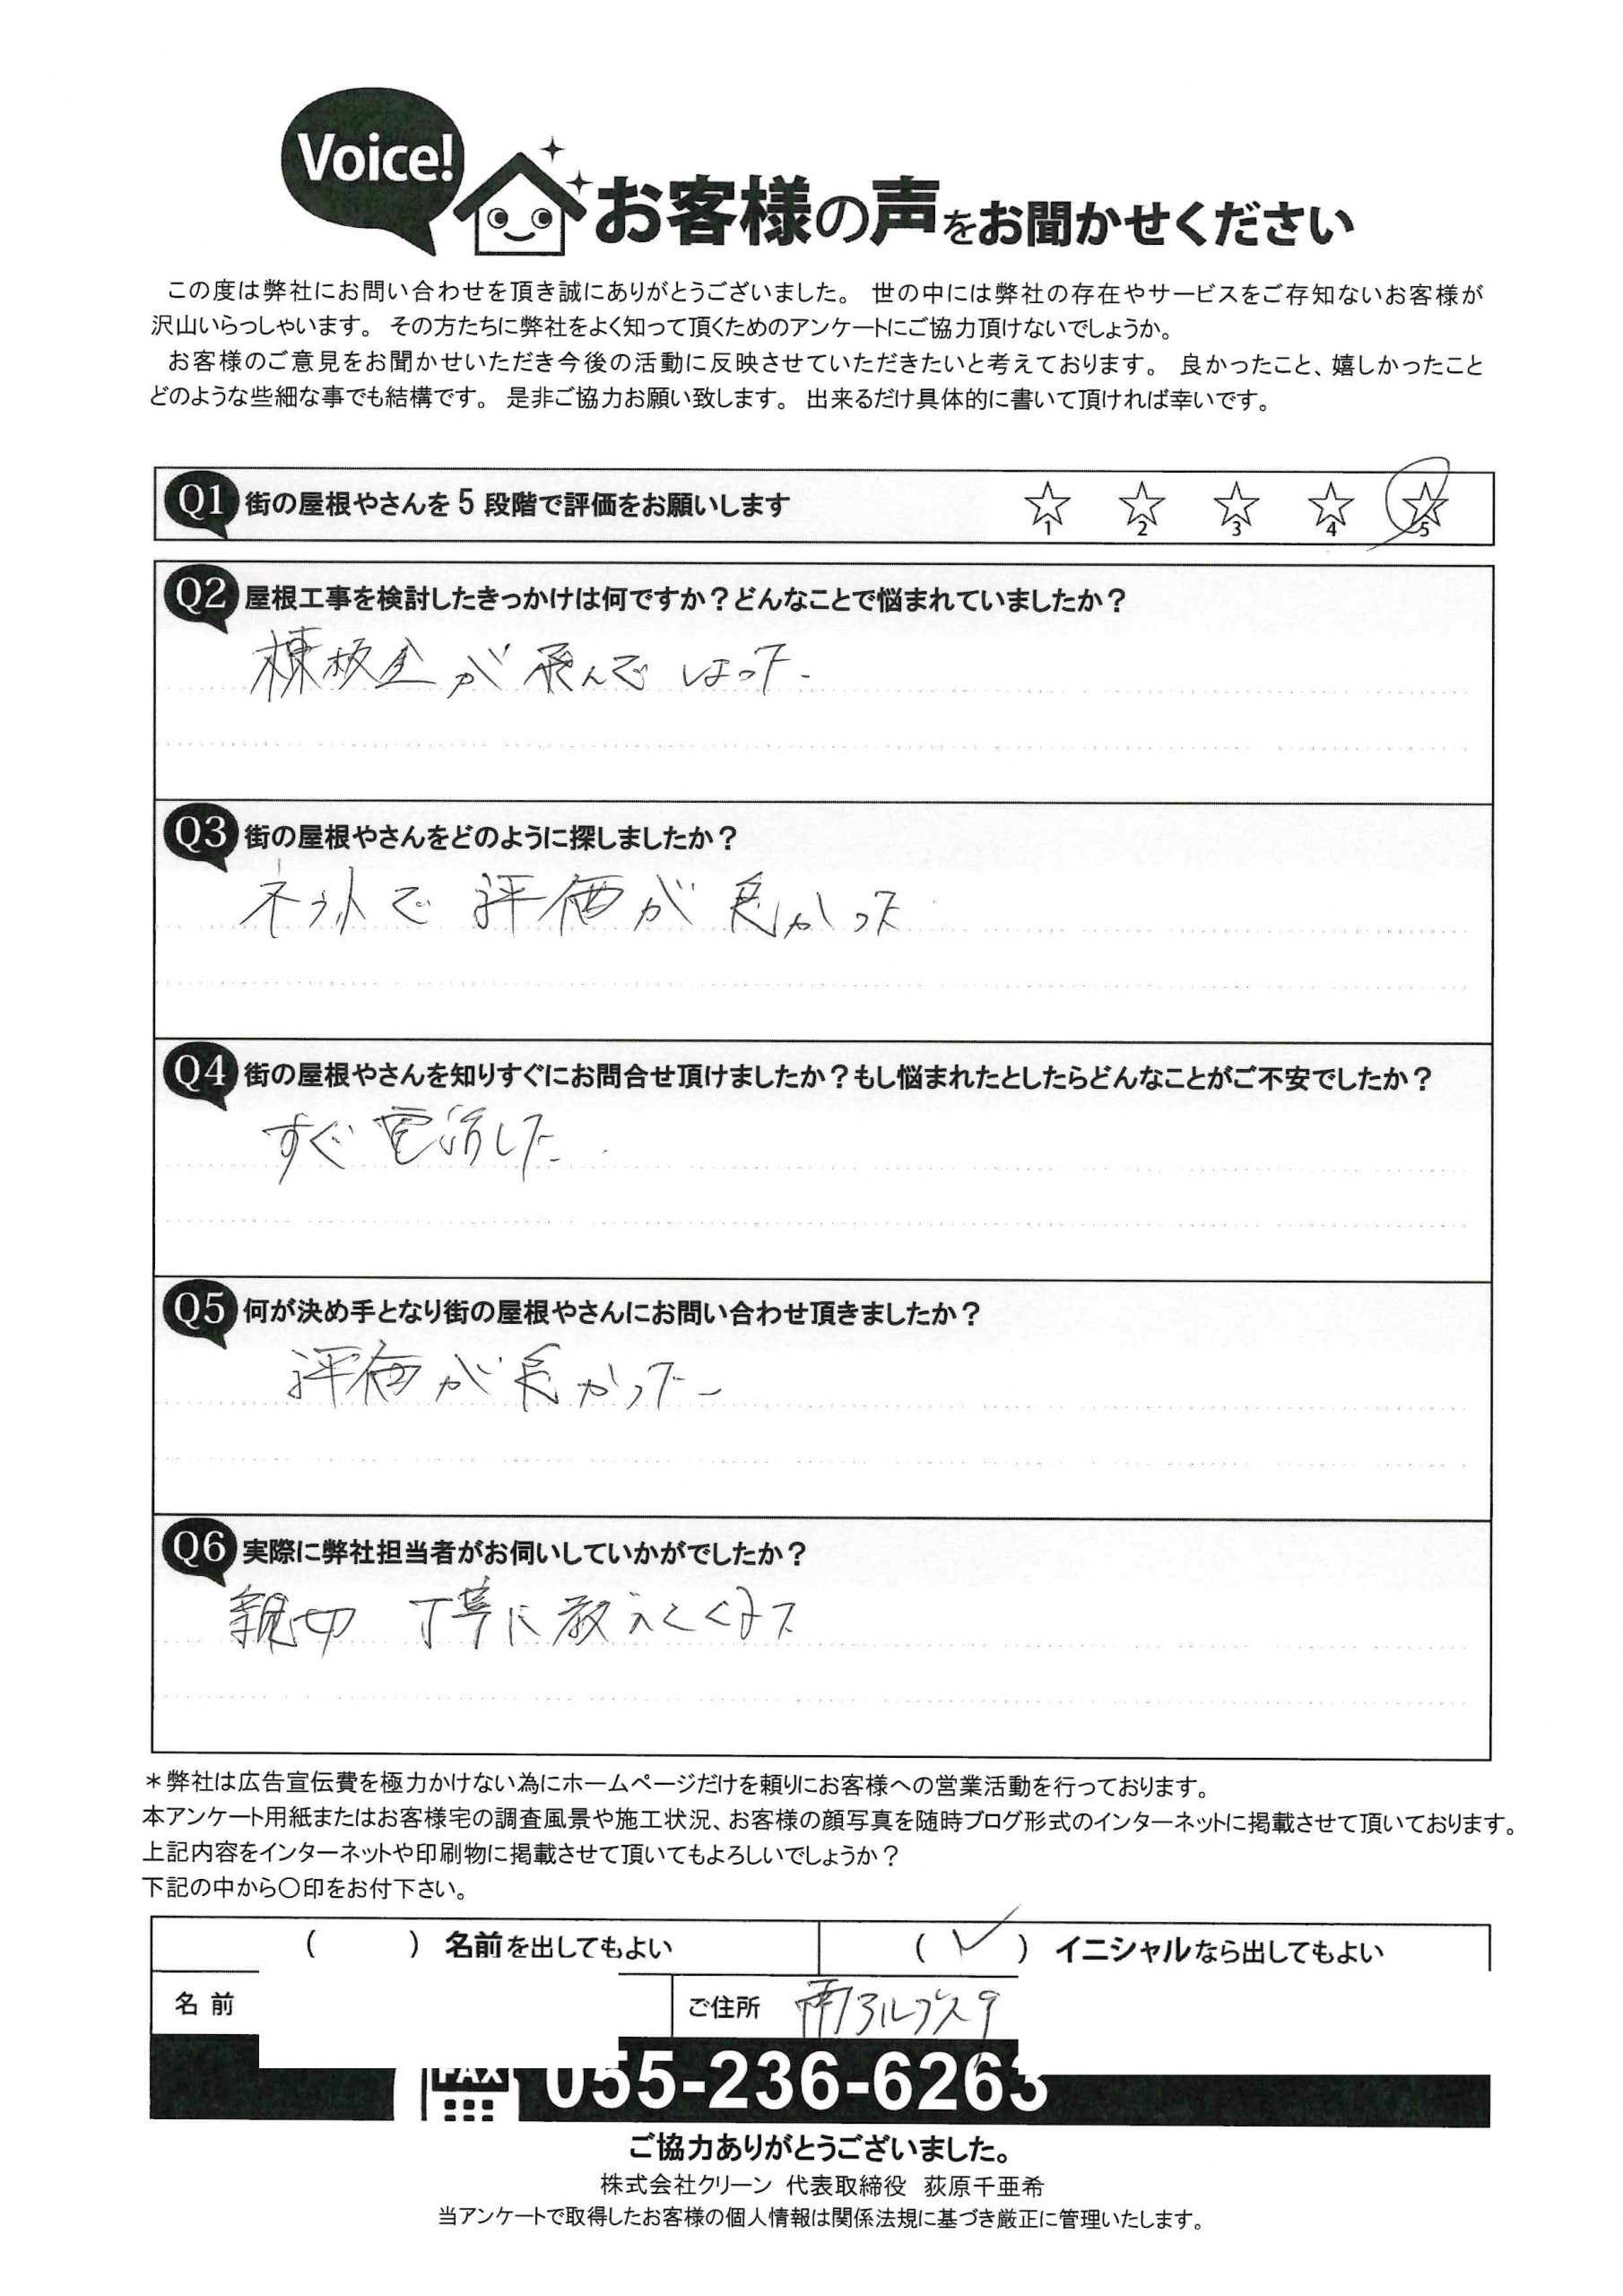 Voice!
お客様の声をお聞かせください
この度は弊社にお問い合わせを頂き誠にありがとうございました。 世の中には弊社の存在やサービスをご存知ないお客様が
沢山いらっしゃいます。 その方たちに弊社をよく知って頂くためのアンケートにご協力頂けないでしょうか。
お客様のご意見をお聞かせいただき今後の活動に反映させていただきたいと考えております。 良かったこと、嬉しかったこと
どのような些細な事でも結構です。 是非ご協力お願い致します。 出来るだけ具体的に書いて頂ければ幸いです。
Q1 街の屋根やさんを5段階で評価をお願いします 1 2 3 4 5
Q2 屋根工事を検討したきっかけは何ですか？どんなことで悩まれていましたか？
棟板金が飛んでしまった.
Q3 街の屋根やさんをどのように探しましたか？
ネットで 評価が良かった
Q4 街の屋根やさんを知りすぐにお問合せ頂けましたか？もし悩まれたとしたらどんなことがご不安でしたか？
すぐ電話した
Q5 何が決め手となり街の屋根やさんにお問い合わせ頂きましたか？
評価が良かった
Q6 実際に弊社担当者がお伺いしていかがでしたか？
親切 丁寧に教えてくれた
＊弊社は広告宣伝費を極力かけない為にホームページだけを頼りにお客様への営業活動を行っております。
本アンケート用紙またはお客様宅の調査風景や施工状況、お客様の顔写真を随時ブログ形式のインターネットに掲載させて頂いております。
上記内容をインターネットや印刷物に掲載させて頂いてもよろしいでしょうか？
下記の中から〇印をお付下さい。
（　　）名前を出してもよい （✓）イニシャルなら出してもよい
名前 ご住所 南アルプス市
FAX 055-236-6263
ご協力ありがとうございました。
株式会社クリーン 代表取締役 荻原千亜希
当アンケートで取得したお客様の個人情報は関係法規に基づき厳正に管理いたします。